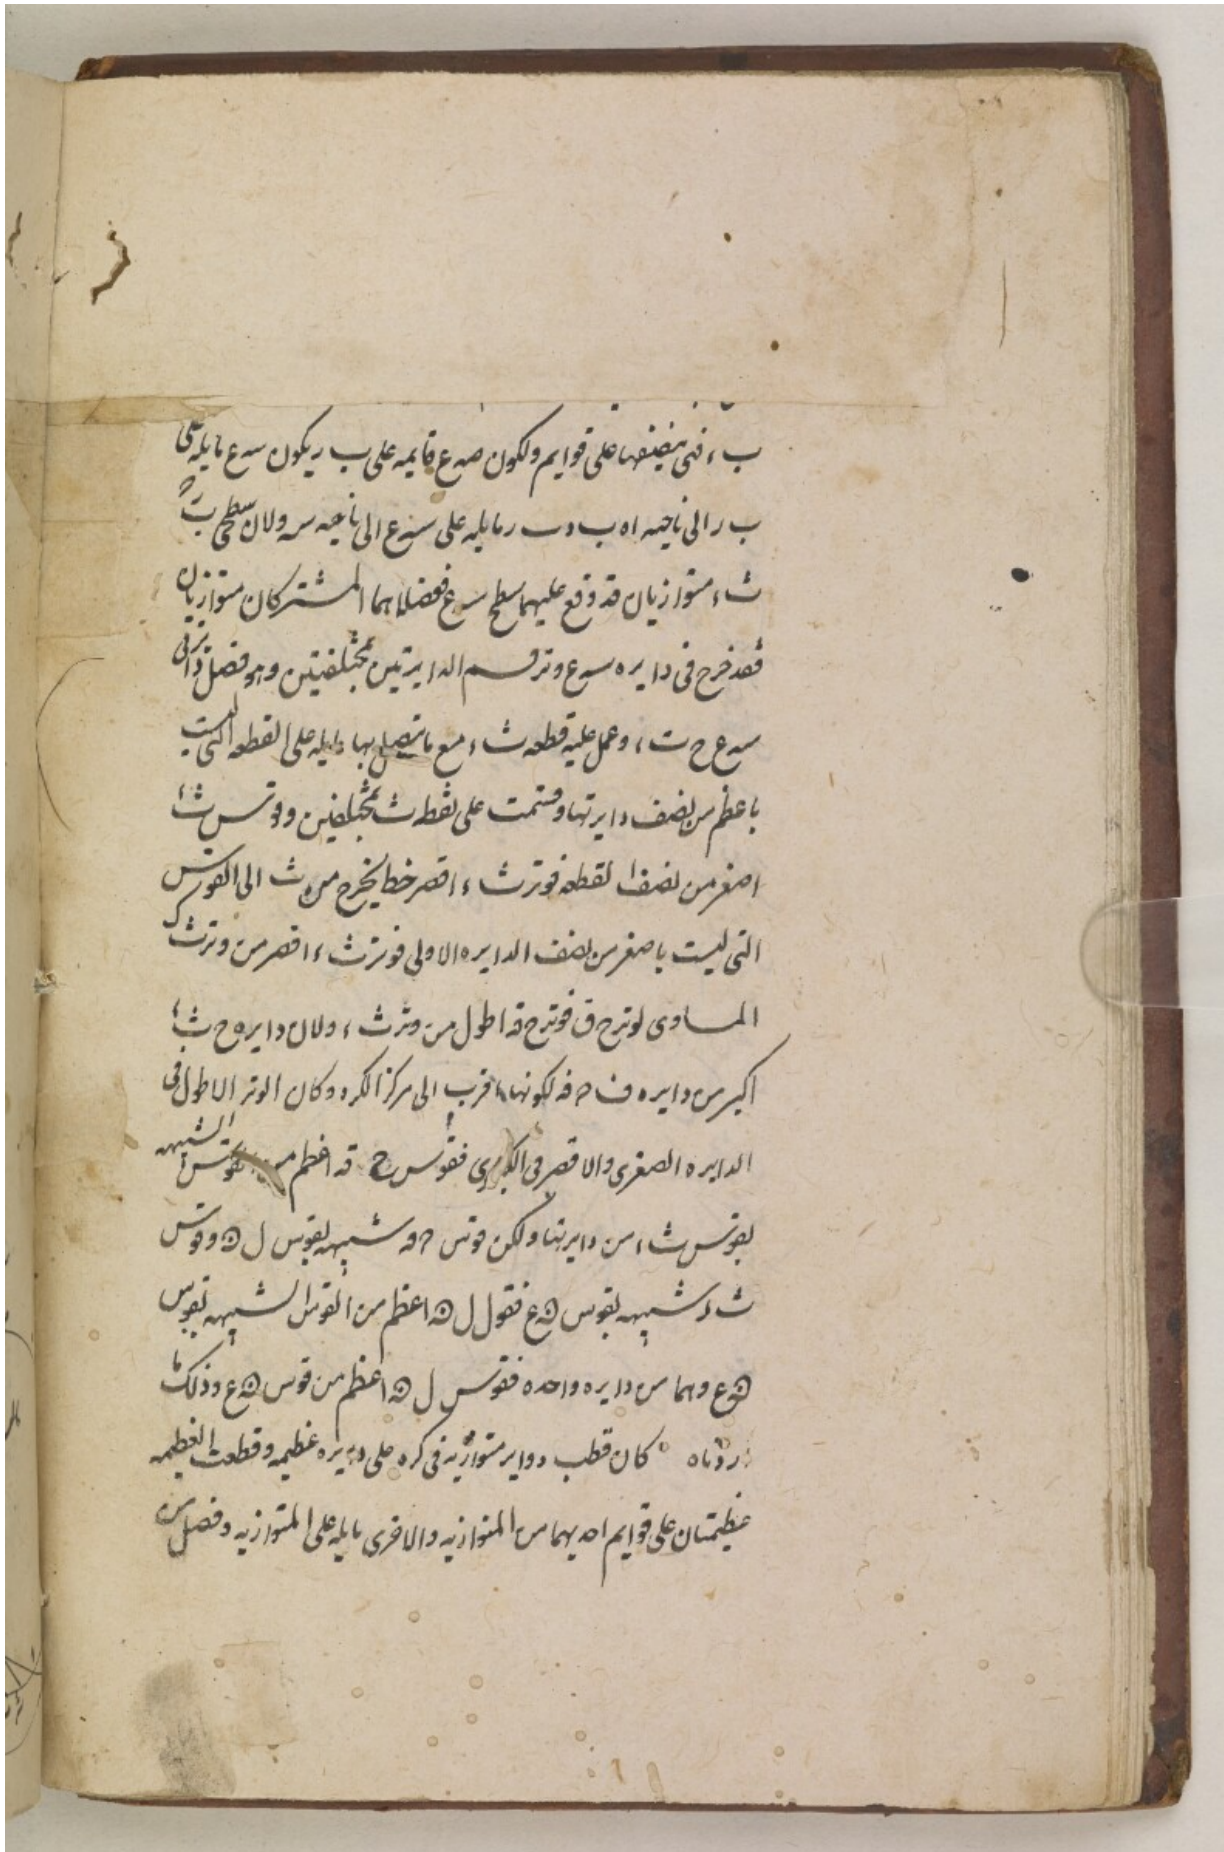 ب ء فهى ينصفها على قوايم ولكون صه ع قايمه على ب ر يكون سه ع مايله على
ب ر الى ناحيه اه ب و ب ر مايله على سه ع الى ناحيه سه ولان سطحى ب
ث ء متوازيان قد وقع عليهما سطح سه ع ففصلاهما المشتركان متوازيان
فقد خرج فى دايره سه ع وتر قسم الدايرتين بمختلفتين وهو فصل دايرتى
سه ع ح ث ء وعمل عليه قطعه ث ء مع ما يتصل بها مايله على القطعه التى ليست
باعظم من نصف دايرتها وقسمت على نقطه ث بمختلفين وقوس ث ء
اصغر من نصف القطعه فوتر ث ء اقصر خط يخرج من ث الى القوس
التى ليست باصغر من نصف الدايره الاولى فوتر ث ء اقصر من وتر ث ك
المساوى لوتر ح ق فوتر ح قه اطول من وتر ث ء ولان دايره ح ث ء
اكبر من دايره ف ح قه لكونها اقرب الى مركز الكره وكان الوتر الاطول فى
الدايره الصغرى والاقصر فى الكبرى فقوس ح قه اعظم من القوس الشبيهه
بقوس ث ء من دايرتها ولكن قوس ح قه شبيهه بقوس ل ه وقوس
ث ء شبيهه بقوس ه ع فقوس ل ه اعظم من القوس الشبيهه بقوس
ه ع وهما من دايره واحده فقوس ل ه اعظم من قوس ه ع وذلك ما
اردناه كان قطب دواير متوازيه فى كره على دايره عظيمه وقطعت العظيمه
عظيمتان على قوايم احديهما من المتوازيه والاخرى مايله على المتوازيه وفصل من